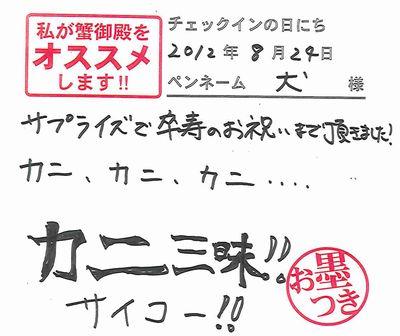 私が蟹御殿を
オススメ
します!!
チェックインの日にち
2012年 8月 24日
ペンネーム 犬 様
サプライズで卒寿のお祝いまで頂きました!
カニ、カニ、カニ....
カニ三昧!!
サイコー!!
お墨つき